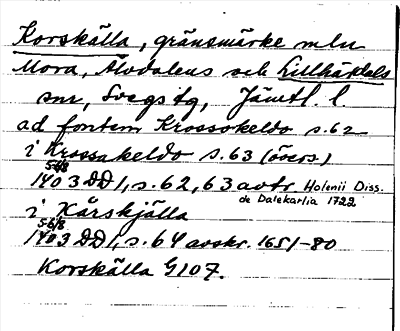 Korskälla, gränsmärke mln
Mora, Älvdalens och Lillhärdals
snr, Svegs tg, Jämtl. l.
ad fontem Krossokeldo s.62
i Krossakeldo s.63 (övers.)
5-6/8
1403 DD1, s.62, 63 avtr. Holenii Diss.
de Dalekarlia 1722
i Kårskjälla
5-6/8
1403 DD1, s.64 avskr. 1651-80
Korskälla G107.